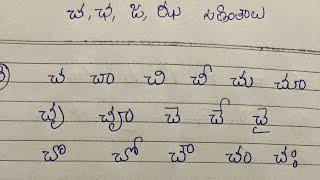 చ, ఛ, జ, ఝ గుణింతాలు
చ చా చి చీ చు చూ
చృ చౄ చె చే చై
చొ చో చౌ చం చః